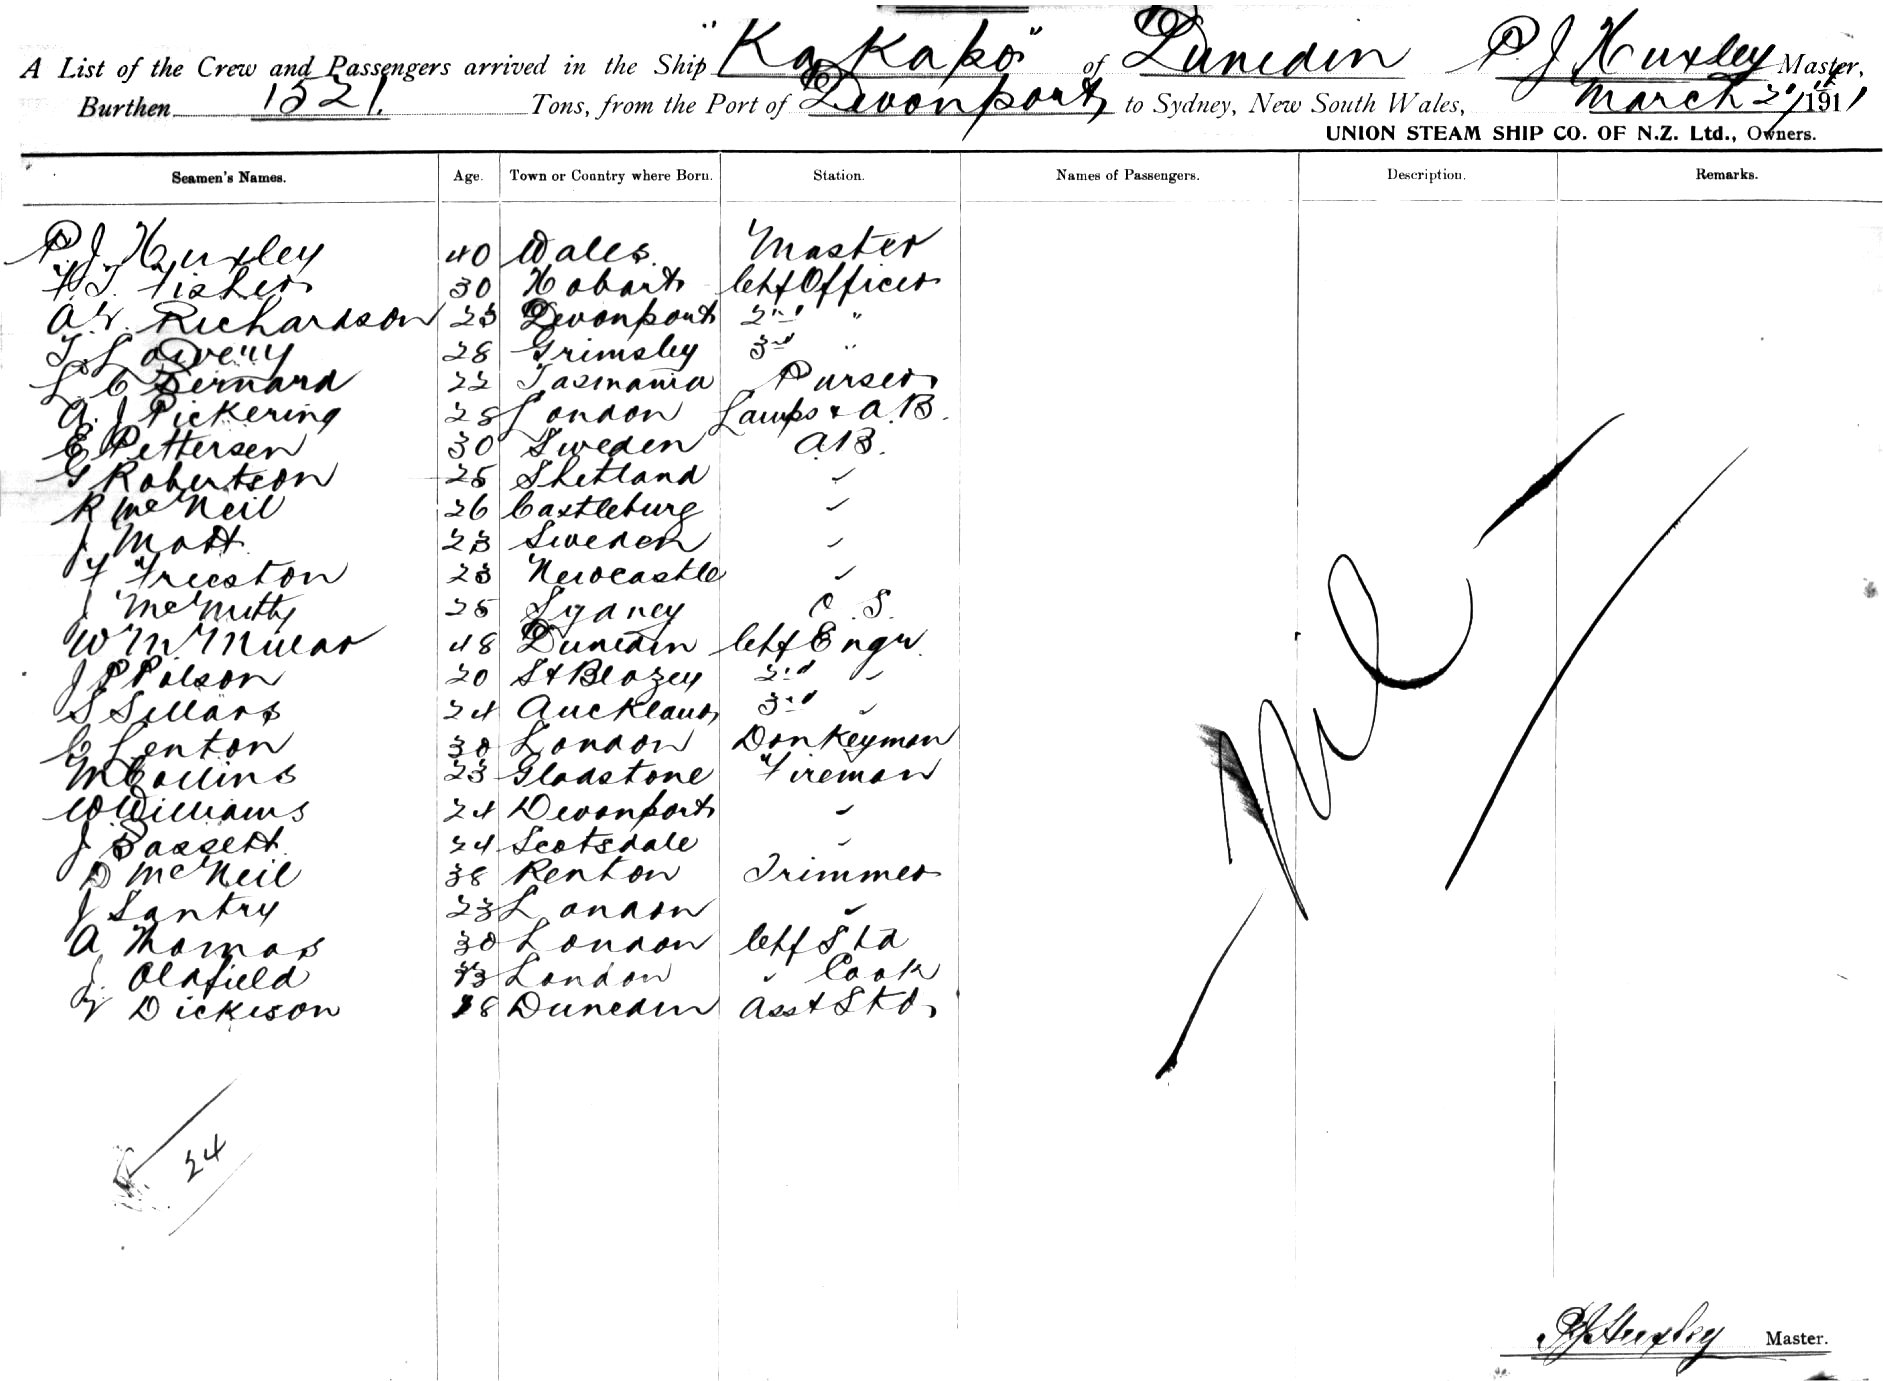 A List of the Crew and Passengers arrived in the Ship "Kakapo" of Dunedin P. J Huxley Master,
Burthen 1521. Tons, from the Port of Devonport to Sydney, New South Wales, March 191
UNION STEAM SHIP CO. OF N.Z. Ltd., Owners.
Seamen's Names. Age. Town or Country where Born. Station. Names of Passengers. Description. Remarks.
P. J Huxley 40 Wales. Master
Fisher 30 Hobart Chf Officer
A. Richardson 23 Devonport 2nd "
28 Grimsley 3rd "
L C Bernard 22 Tasmania Purser
A. J Pickering 28 London Lamps & A.B.
E Pettersen 30 Sweden A.B.
G Robertson 25 Shetland "
R McNeil 26 Castleburg "
J Matt 23 Sweden "
F Freeston 23 Newcastle "
J 25 Sydney O. S.
W M Millar 48 Dunedin Chf Engr.
J P Polson 20 St Blazey 2nd "
S Sellars 24 Auckland 3rd "
C Lenton 30 London Donkeyman
M Collins 23 Gladstone Fireman
W Williams 24 Devonport "
J Bassett 24 Scotsdale "
D McNeil 38 Renton Trimmer
J Santry 23 London "
A Thomas 30 London Chf Std
J. Oldfield London " Cook
Dickison 18 Dunedin Asst Std.
Nil
24
P J Huxley Master.